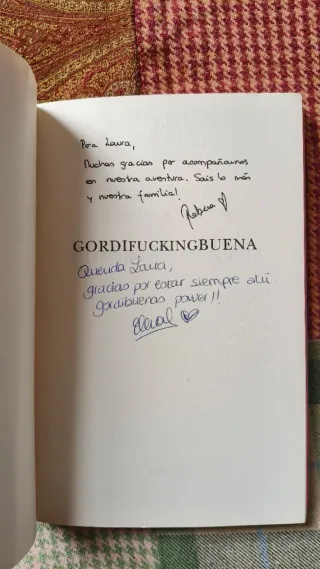 Para Laura,
Muchas gracias por acompañarnos
en nuestra aventura. Sois lo más
y nuestra familia!
Rebeca
GORDIFUCKINGBUENA
Querida Laura,
gracias por estar siempre ahí.
gordibuenas power!!